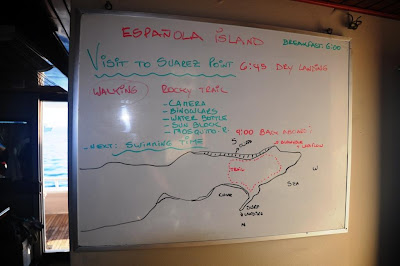 ESPAÑOLA ISLAND
BREAKFAST 6:00
VISIT TO SUAREZ POINT 6:45 DRY LANDING
WALKING ROCKY TRAIL
- CAMERA
- BINOCULARS
- WATER BOTTLE
- SUN BLOCK
- MOSQUITO R.
9:00 BACK ABOARD!
- NEXT: SWIMMING TIME
S CLIFFS
TRAIL
SEA
W
COVE
N